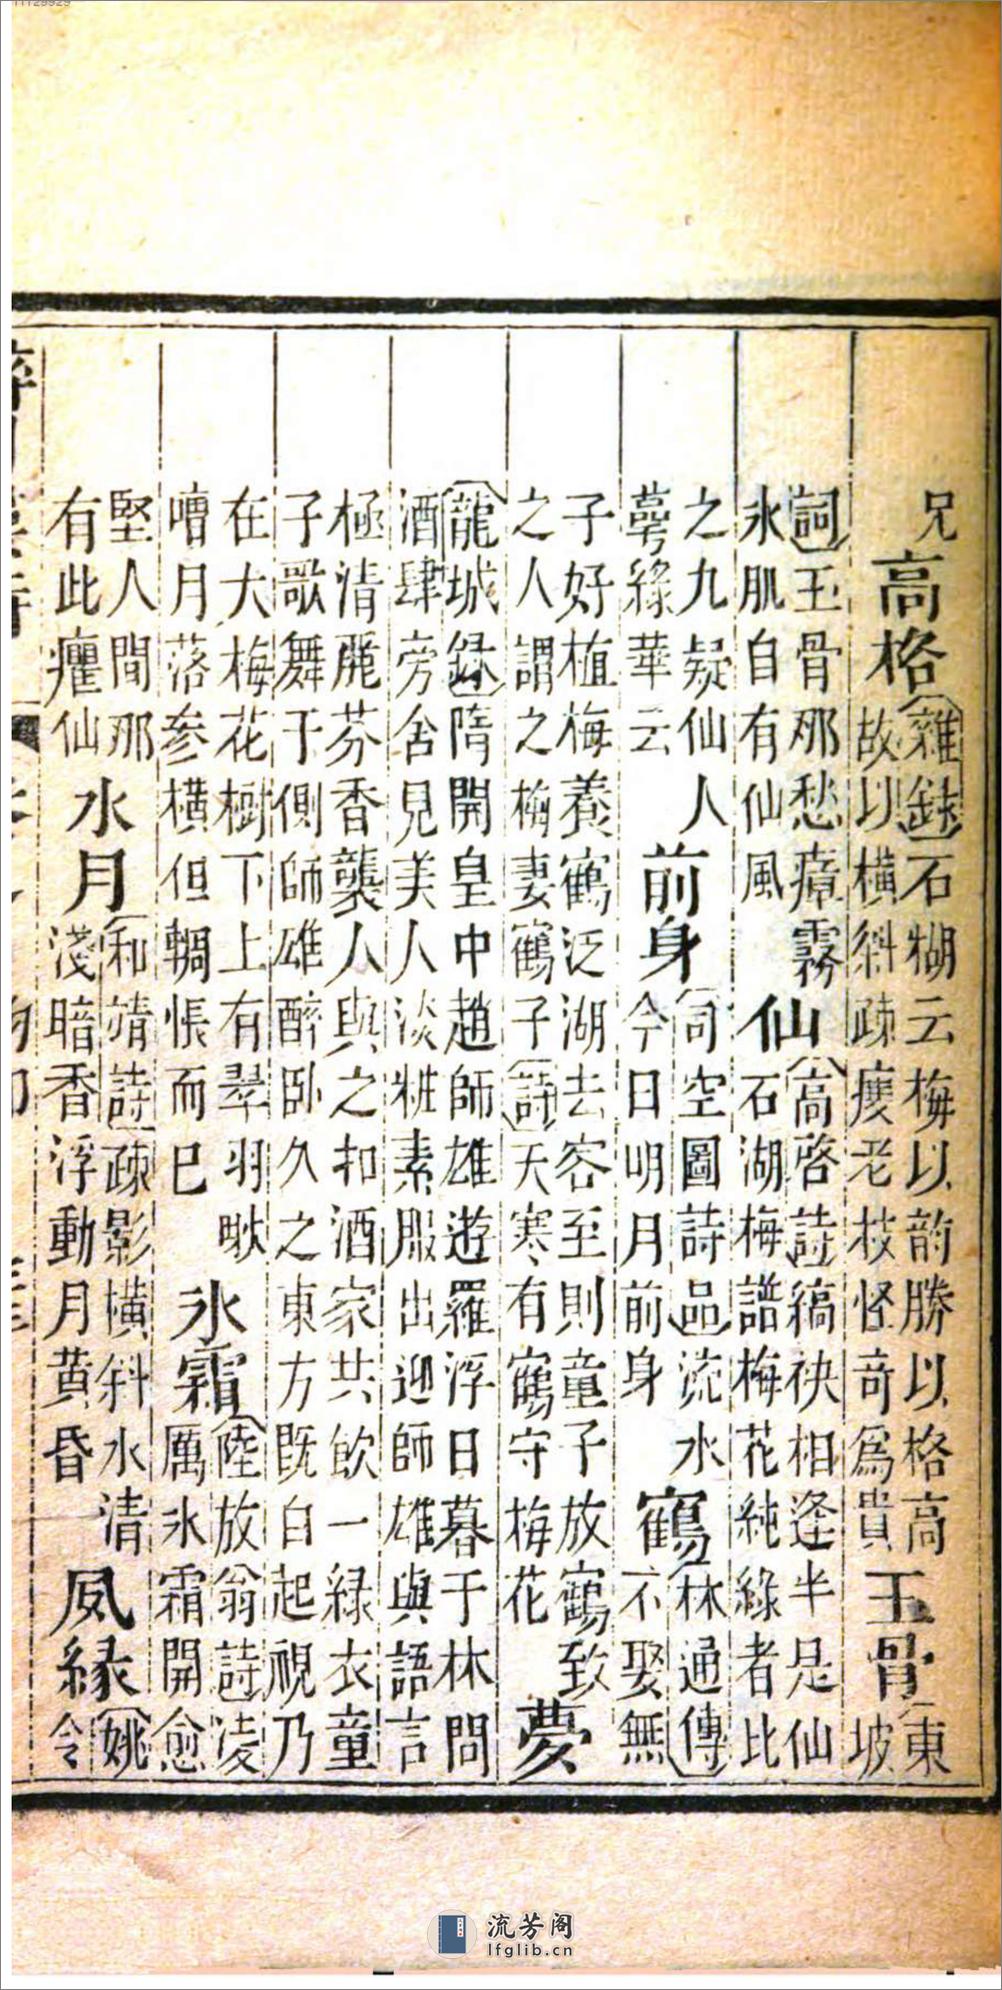 11129929
兄
高格
雜録石湖云梅以韵勝以格高
故以橫斜疎瘦老枝怪竒爲貴
玉骨
東
坡
詞玉骨那愁瘴霧
氷肌自有仙風
仙
高啓詩縞袂相逢半是仙
石湖梅譜梅花純綠者比
之九疑仙人
萼綠華云
前身
司空圖詩品流水
今日明月前身
鶴
林逋傳
不娶無
子好植梅養鶴泛湖去客至則童子放鶴致
之人謂之梅妻鶴子詩天寒有鶴守梅花
夢
龍城録隋開皇中趙師雄遊羅浮日暮于林問
酒肆旁舍見美人淡粧素服出迎師雄與語言
極清麗芬香襲人與之扣酒家共飲一綠衣童
子歌舞于側師雄醉卧久之東方既白起視乃
在大梅花樹下上有翠羽啾
嘈月落参橫但輖悵而已
氷霜
陸放翁詩凌
厲氷霜開愈
堅人間那
有此癯仙
水月
和靖詩疎影橫斜水清
淺暗香浮動月黃昏
風緣
姚
令
流芳阁
lfglib.cn